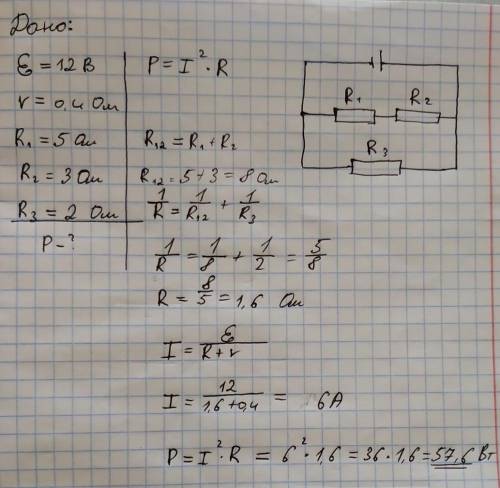 Дано:
ℰ = 12 В
r = 0,4 Ом
R₁ = 5 Ом
R₂ = 3 Ом
R₃ = 2 Ом
P - ?
P = I² · R
R₁₂ = R₁ + R₂
R₁₂ = 5 + 3 = 8 Ом
1/R = 1/R₁₂ + 1/R₃
1/R = 1/8 + 1/2 = 5/8
R = 8/5 = 1,6 Ом
I = ℰ/(R + r)
I = 12/(1,6 + 0,4) = 6А
P = I² · R = 6² · 1,6 = 36 · 1,6 = 57,6 Вт
R₁ R₂
R₃